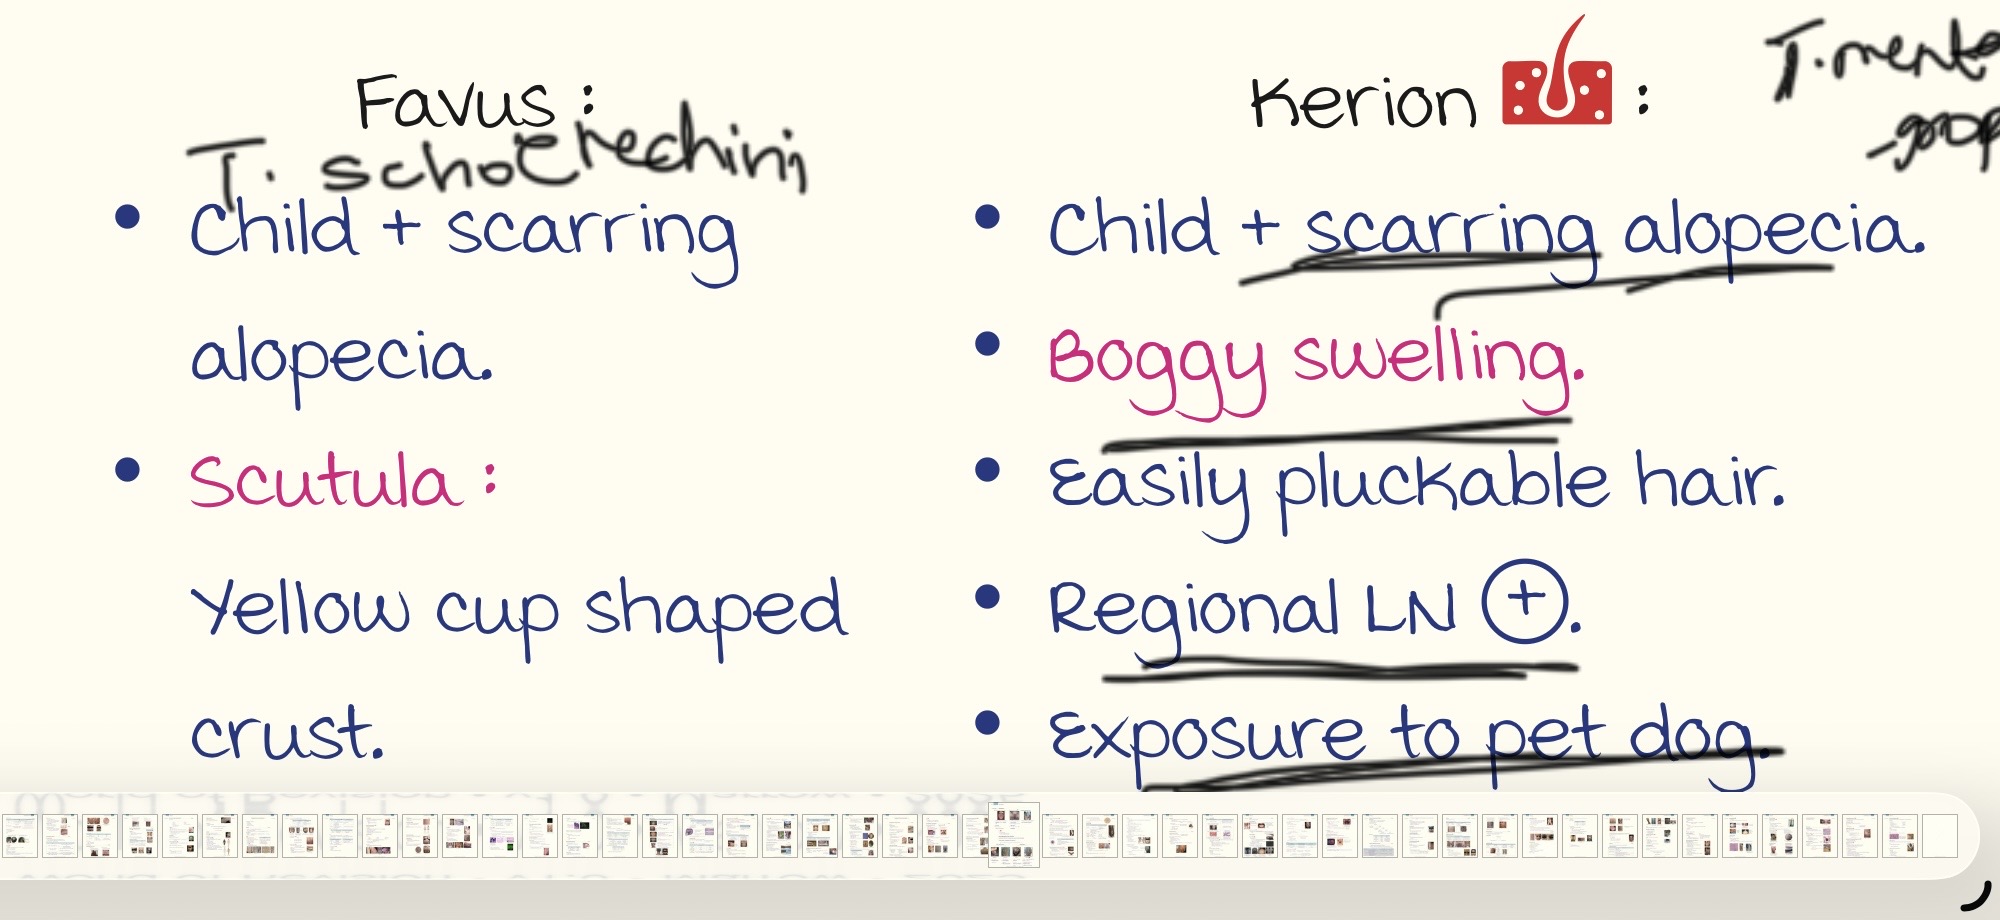 Favus :
T. schoenechini
Child + scarring
alopecia.
Scutula :
Yellow cup shaped
crust.
Kerion :
T. menta
-grop
Child + scarring alopecia.
Boggy swelling.
Easily pluckable hair.
Regional LN +.
Exposure to pet dog.